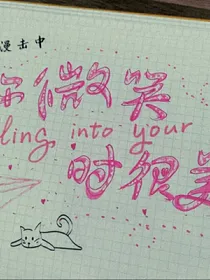 漫击中
你微笑
ling into your
时很美